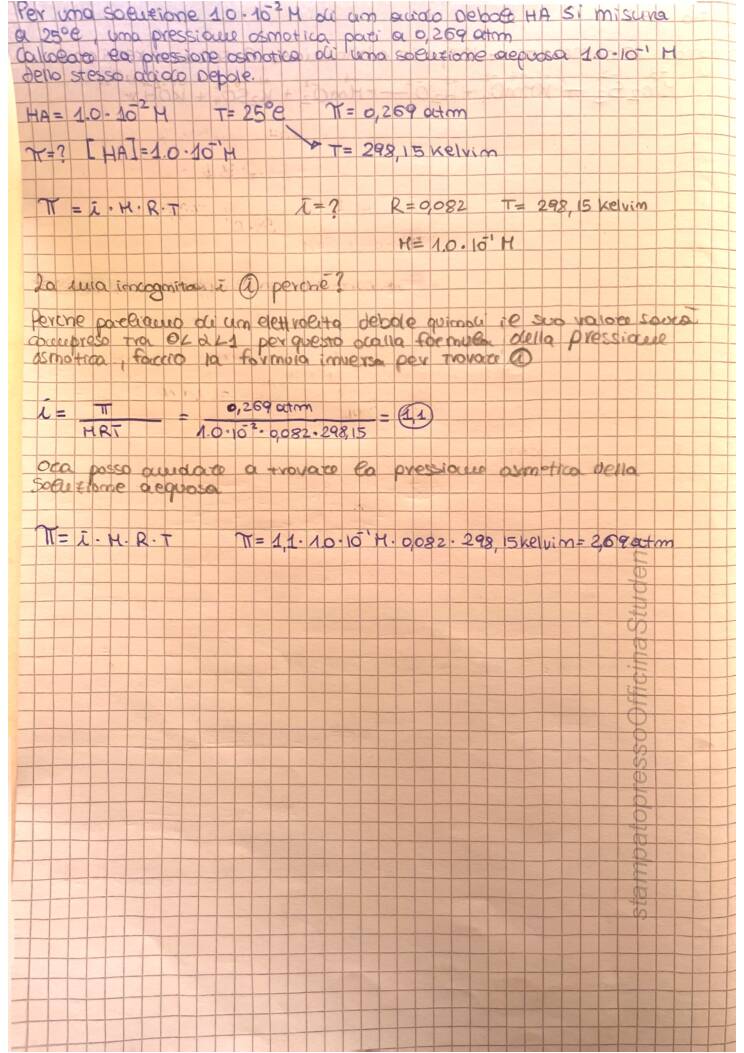 Per una soluzione 1.0·10⁻² M di un acido debole HA si misura
a 25°C, una pressione osmotica pari a 0,269 atm
Calcolare la pressione osmotica di una soluzione acquosa 1.0·10⁻¹ M
dello stesso acido debole.
HA = 1.0·10⁻² M T = 25°C π = 0,269 atm
π=? [HA]=1.0·10⁻¹M T= 298,15 kelvin
π = i·M·R·T i=? R=0,082 T= 298,15 kelvin
M= 1.0·10⁻¹ M
La mia incognita è i perché?
Perche parliamo di un elettrolita debole quindi il suo valore sarà
compreso tra 0<α<1 per questo dalla formula della pressione
osmotica, faccio la formula inversa per trovare i
i = π / MRT = 0,269 atm / 1.0·10⁻²·0,082·298,15 = 1,1
Ora posso andare a trovare la pressione osmotica della
soluzione acquosa
π= i·M·R·T π= 1,1·1.0·10⁻¹M·0,082·298,15kelvin= 2,69 atm
stampatopressoOfficinaStudent